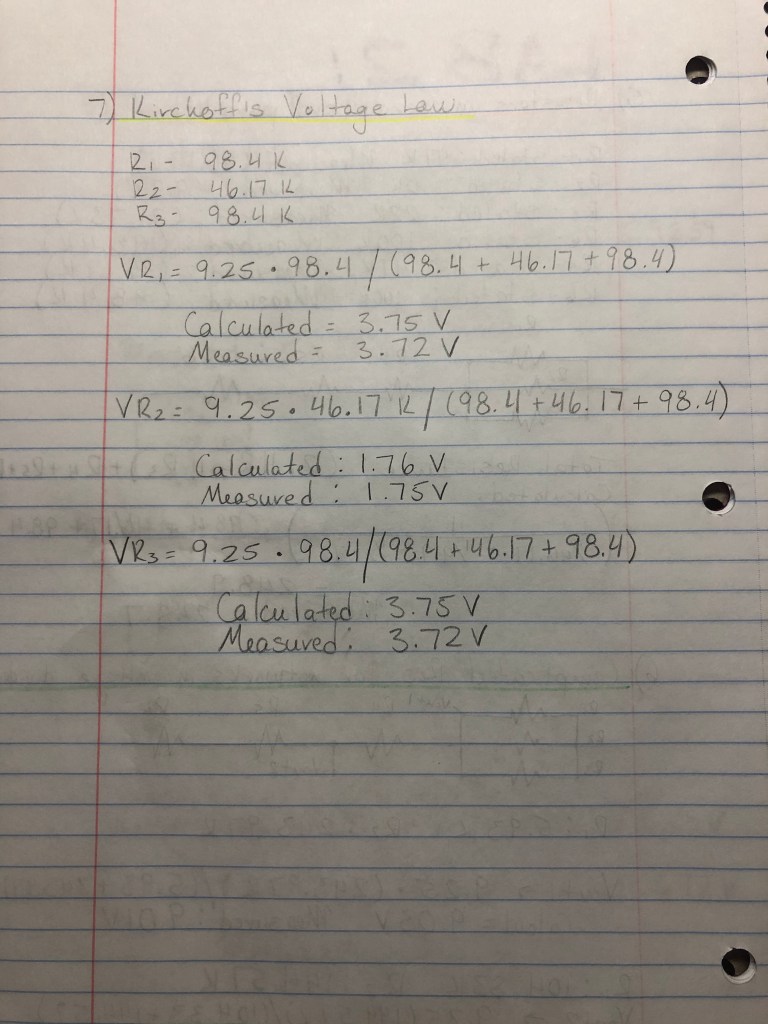 7) Kirchoff's Voltage Law
R1 - 98.4 K
R2 - 46.17 K
R3 - 98.4 K
VR1 = 9.25 • 98.4 / (98.4 + 46.17 + 98.4)
Calculated = 3.75 V
Measured = 3.72 V
VR2 = 9.25 • 46.17 K / (98.4 + 46.17 + 98.4)
Calculated : 1.76 V
Measured : 1.75V
VR3 = 9.25 • 98.4/(98.4 + 46.17 + 98.4)
Calculated : 3.75 V
Measured : 3.72 V